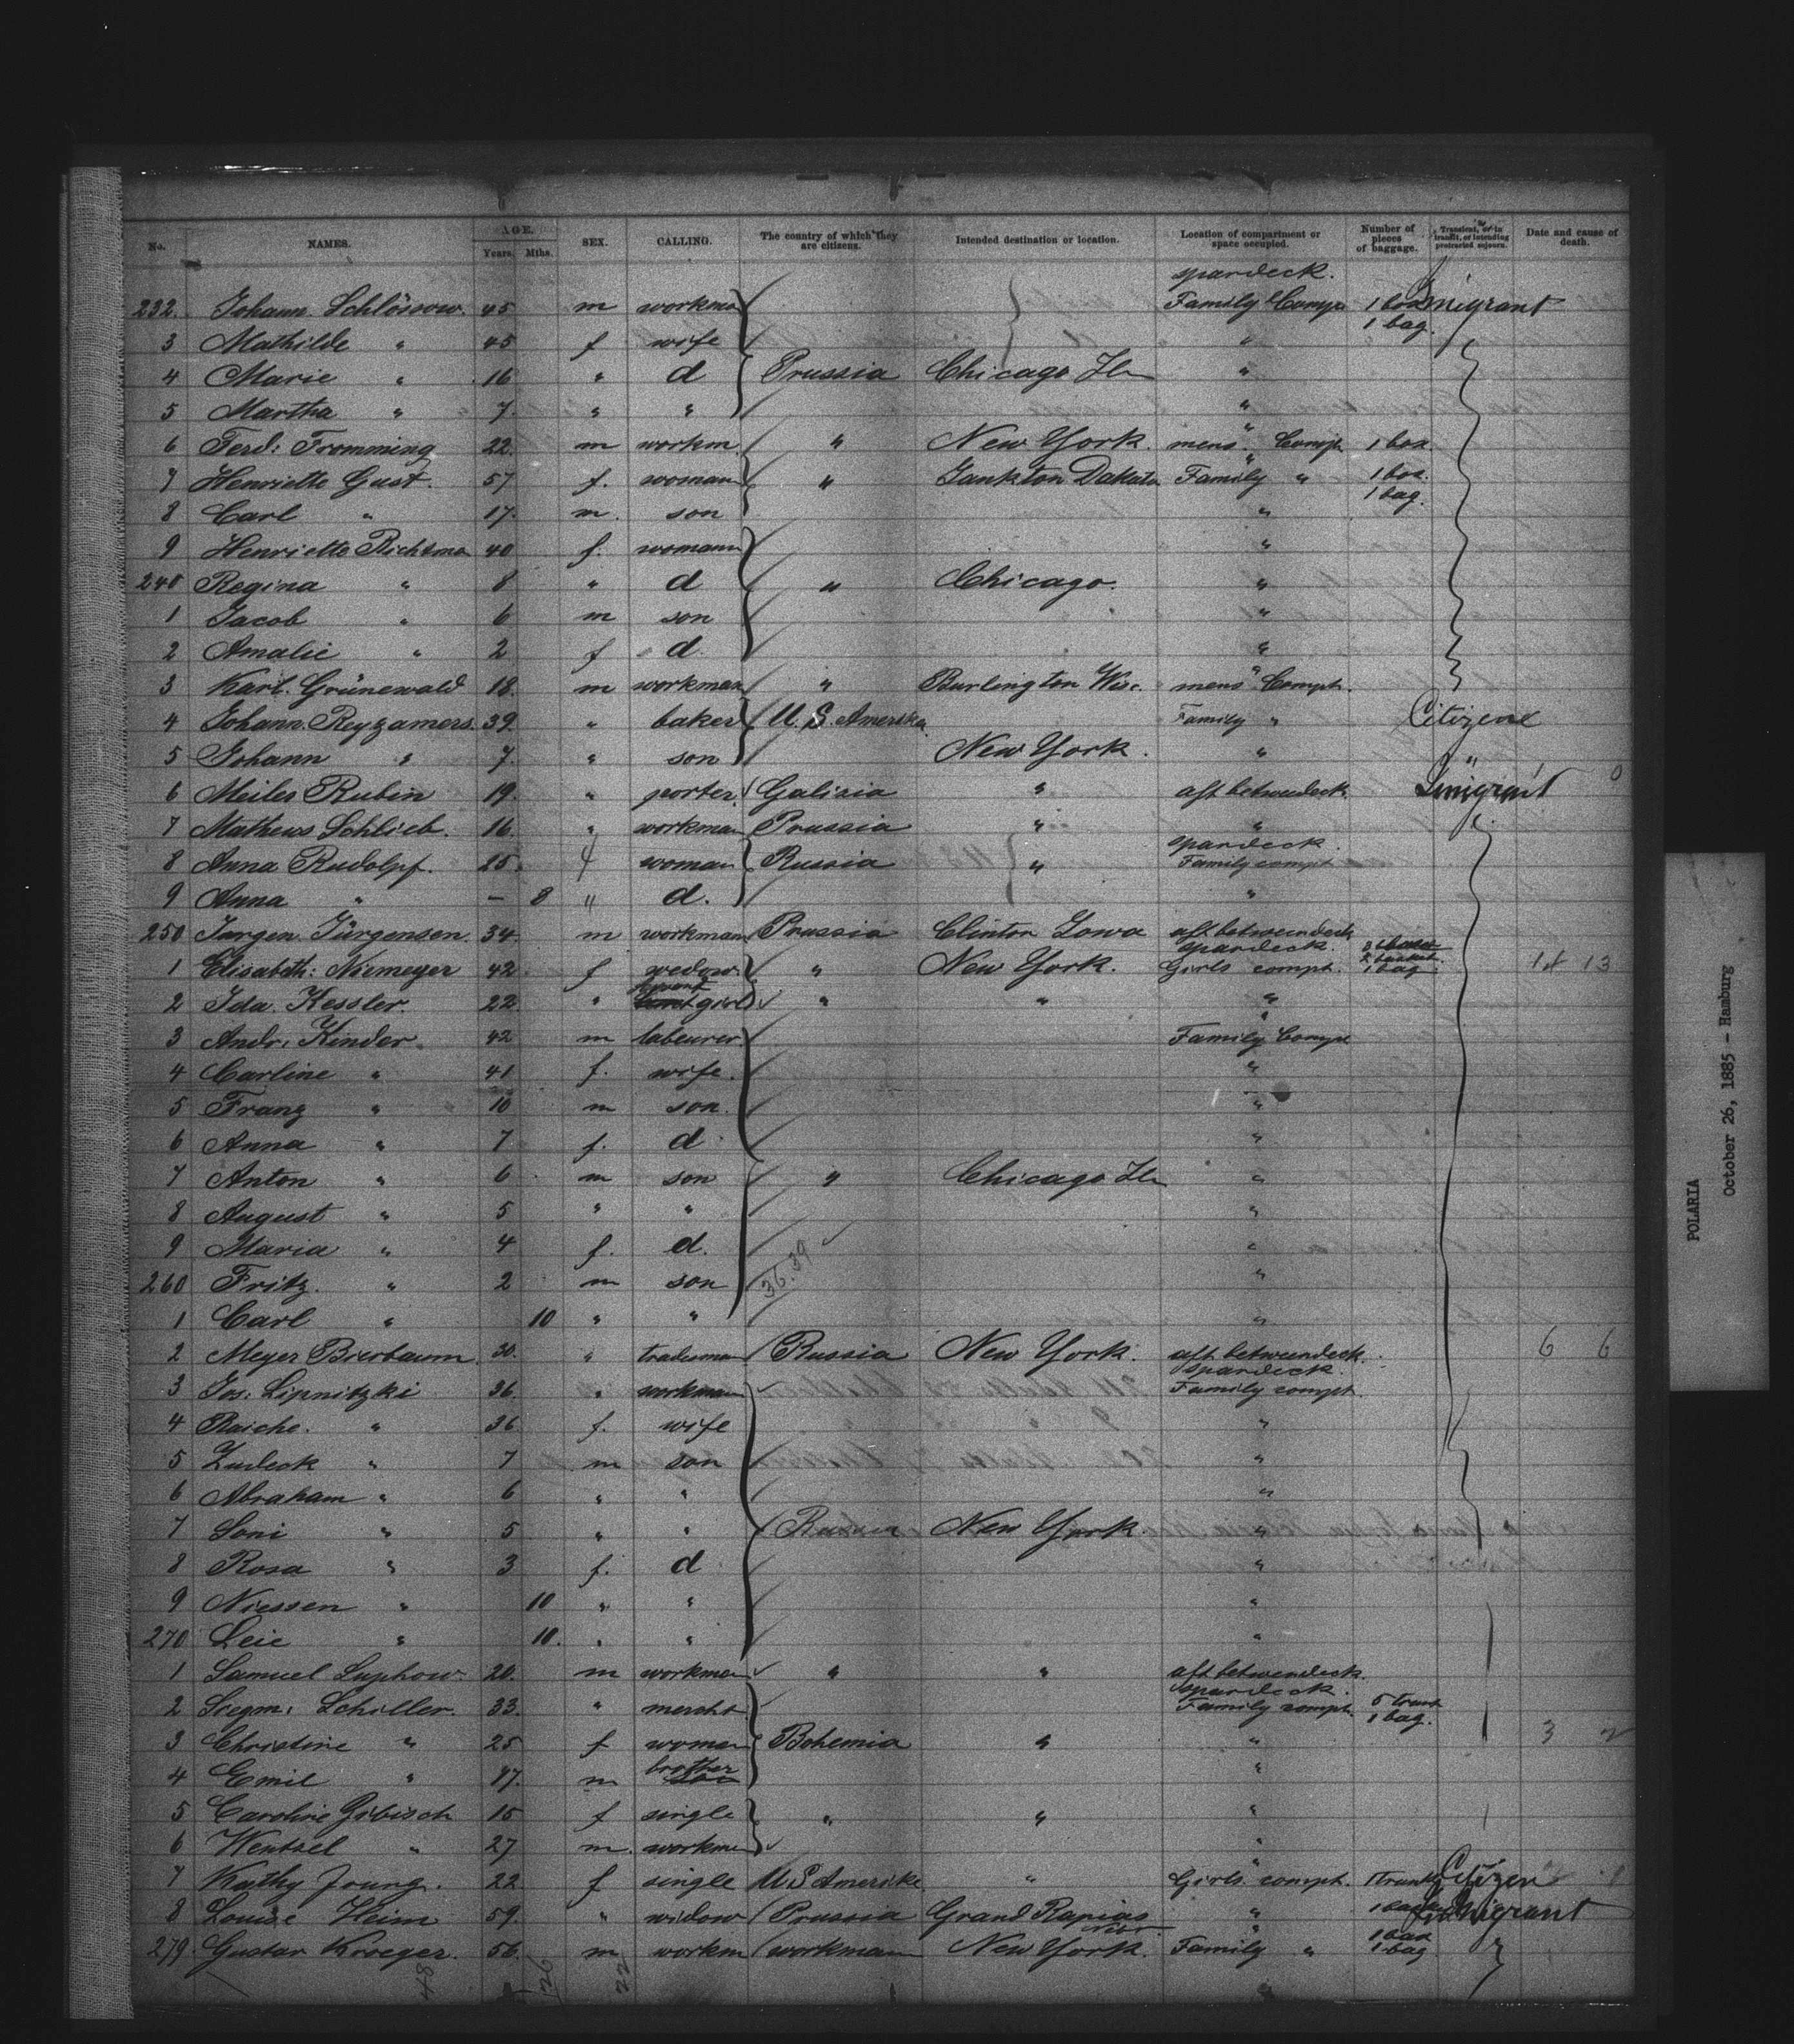 No. NAMES. AGE. Years. Mths. SEX. CALLING. The country of which they are citizens. Intended destination or location. Location of compartment or space occupied. Number of pieces of baggage. Transient, or in transit, or intending protracted sojourn. Date and cause of death.
spardeck.
232. Johann Schlössow. 45 m workman Family Comp 1 box Imigrant
1 bag.
3 Mathilde " 45 f wife "
4 Marie " 16 " d Prussia Chicago Ill "
5 Martha " 7 " " "
6 Ferd: Fromming 22. m workm. " New York. mens " Compt. 1 box.
7 Henriette Gust. 57 f. woman " Jankton Dakota Family " 1 box.
1 bag.
8 Carl " 17. m. son "
9 Henriette Richtma 40 f. womann "
240 Regina " 8 " d " Chicago. "
1 Jacob " 6 m son "
2 Amalie " 2 f d. "
3 Karl. Grünewald 18. m workman " Burlington Wisc. mens " Compt.
4 Johann. Reyzamers. 39. " baker U. S. Amerika Family " Citizene
5 Johann " 7. " son New York. " "
6 Meiles Rubin 19. " porter. Galizia " aft betweendeck. Imigrant 0
7 Mathews Schlieb. 16. " workman Prussia " "
spardeck.
8 Anna Rudolpf. 25. f woman Russia " Family compt
9 Anna " — 8 " d. "
250 Jurgen Jürgensen. 34. m workman Prussia Clinton Iowa aft betweendeck
spardeck.
1 Elisabeth: Niemeyer 42. f wedow. " New York. Girls compt. 1 bag. 14 13
2 Ida. Kessler. 22 " servant girl " " "
3 Andr: Kinder. 42 m labeurer. Family Compt
4 Carline " 41 f. wife. "
5 Franz " 10 m son. "
6 Anna " 7 f. d "
7 Anton " 6 m son " Chicago Ill "
8 August " 5 " " "
9 Maria " 4 f. d. "
260 Fritz. " 2 m son 36.39 "
1 Carl " 10 " " "
2 Meyer Bierbaum. 30. " tradesman Russia New York. aft betweendeck. 6 6
spardeck.
3 Jos: Lipnitzki 36. " workman Family compt.
4 Raiche. " 36. f. wife "
5 Zudeck " 7 m son "
6 Abraham " 6 " " "
7 Soni " 5 " " Russia New York. "
8 Rosa " 3 f. d "
9 Niessen " 10 " " "
270 Leie " 10. " " "
1 Samuel Luphow. 20. m workman " " aft betweendeck.
spardeck.
2 Siegm: Schiller. 33. " mercht Family compt. 5 trunk
1 bag.
3 Christine " 25 f woman Bohemia " " 3 2
4 Emil " 17. m brother "
5 Caroline Gibisch 15 f single " " "
6 Wentzel " 27 m. workman "
7 Kathy Joung. 22 f single U S Amerika " Girls " compt. 1 trunk Citizen
8 Louise Heim 59. " widow Prussia Grand Rapids " Imigrant
279. Gustav Kroeger. 56. m workm workman New York. Family " 1 box
1 bag "
48 126 22
POLARIA
October 26, 1885 - Hamburg